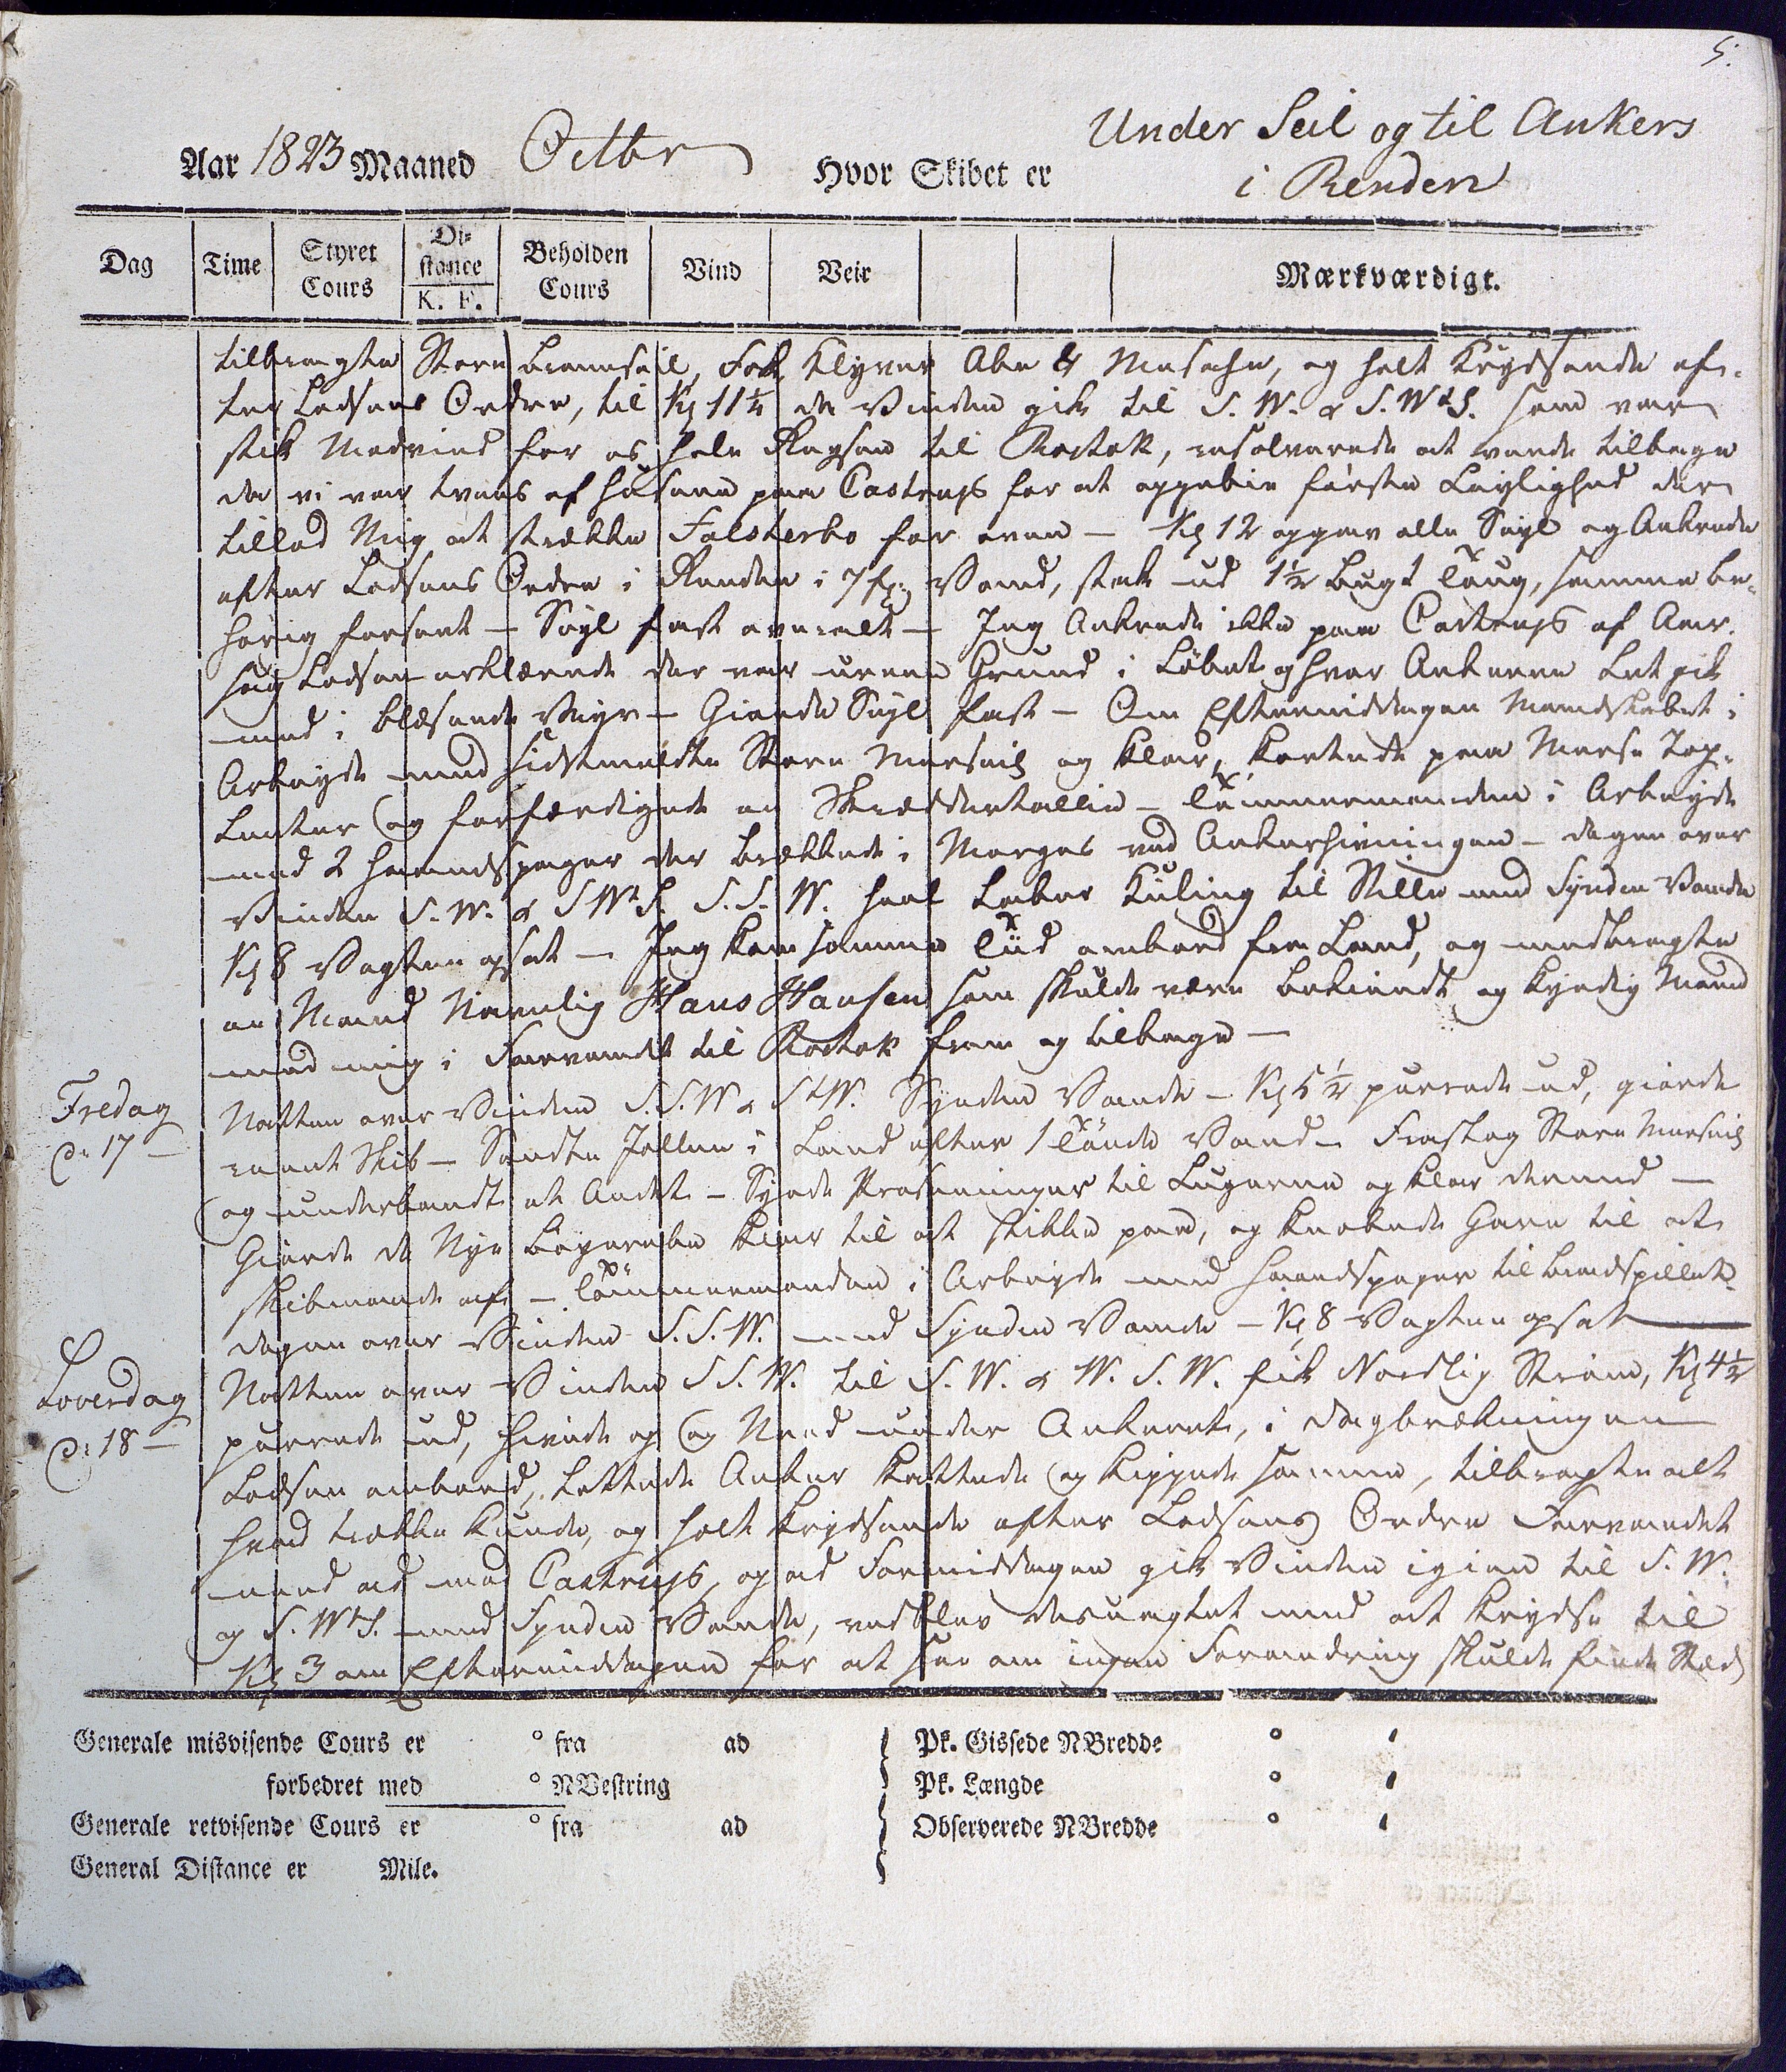 5.
Under Seil og til Ankers
Aar 1823 Maaned Octbr Hvor Skibet er i Renden
Dag Time Styret Cours Distance K. F. Beholden Cours Vind Veir Mærkværdigt.
tilbragte Store Bramseil, Fok, Klyver Abe & Mesahn, og holt Krydsende ef-
ter Lodsens Ordre, til Kl 11¼ da Vinden gik til S. W. & S. WtS. som var
stik Modvind for os hele Reysen til Rostok, resolverede at vende tilbage
da vi var tvers af Husene paa Castrups for at oppebie første Leylighed der
tillod Mig at strække Falsterbo for oven - Kl 12 opgav alle Seyl og Ankrede
efter Lodsens Ordre i Renden i 7 f: Vand, stak ud 1½ Bugt Toug, samme be-
hørig forsært - Seyl fast overalt - Jeg Ankrede ikke paa Castrups af Aar-
sag Lodsen erklærede der var ureene Grund i Løbet og hvor Ankeren let gik
med i blæsende Veyr - Giorde Seyl fast - Om Eftermiddagen Mandskabet i
Arbeyde med sidstmeldte Store Mersseil og klar, kortede paa Merse Top-
lenter og forfærdigede en Skræddertallie - Tømmermanden i Arbeyde
med 2 Haandspager der brækkede i Morges ved Ankerhivningen - Dagen over
Vinden S. W. & SWtS. S. S. W. haal laber Kuling til Stille med Synden Vande
Kl 8 Vagten opsat - Jeg kom samme Tiid ombord fra Land, og medbragte
en Mand Navnlig Hans Hansen som skulde være bekiendt og kyndig Mand
med mig i Farvandet til Rostok frem og tilbage -
Fredag
D: 17 -
Natten over Vinden S. S. W & StW. Synden Vande - Kl 5½ purrede ud, giorde
reent Skib - Sendte Jollen i Land efter 1 Tønde Vand - Fraslog Store Mersseil
og underbandt et Andet - Syede Presenninger til Lugerne og klar dermed -
Giorde de Nye klar til at stikke paa, og knobede Garn til at
skibmande af - Tømmermanden i Arbeyde med Haandspager til Bradspillet
Dagen over Vinden S. S. W. med Synden Vande - Kl 8 Vagten opsat
Loverdag
D: 18 -
Natten over Vinden S S. W. til S. W. & W. S. W. fik Nordlig Strøm, Kl 4½
purrede ud, hivede op og Ned under Ankeret, i Dagbrækningen
Lodsen ombord, Lettede Anker kattede og kippede samme, tilbragte alt
hvad trække kunde, og holt krydsende efter Lodsens Ordre Farvandet
ned ad mod Castrups, op ad Formiddagen gik Vinden igien til S. W.
og S. WtS. med Synden Vande, vedblev desuagtet med at krydse til
Kl 3 om Eftermiddagen for at see om ingen Forandring skulde finde Sted
Generale misvisende Cours er ° fra ad
forbedret med ° NVestring
Generale retvisende Cours er ° fra ad
General Distance er Mile.
Pk. Gissede NBredde ° '
Pk. Længde ° '
Observerede NBredde ° '